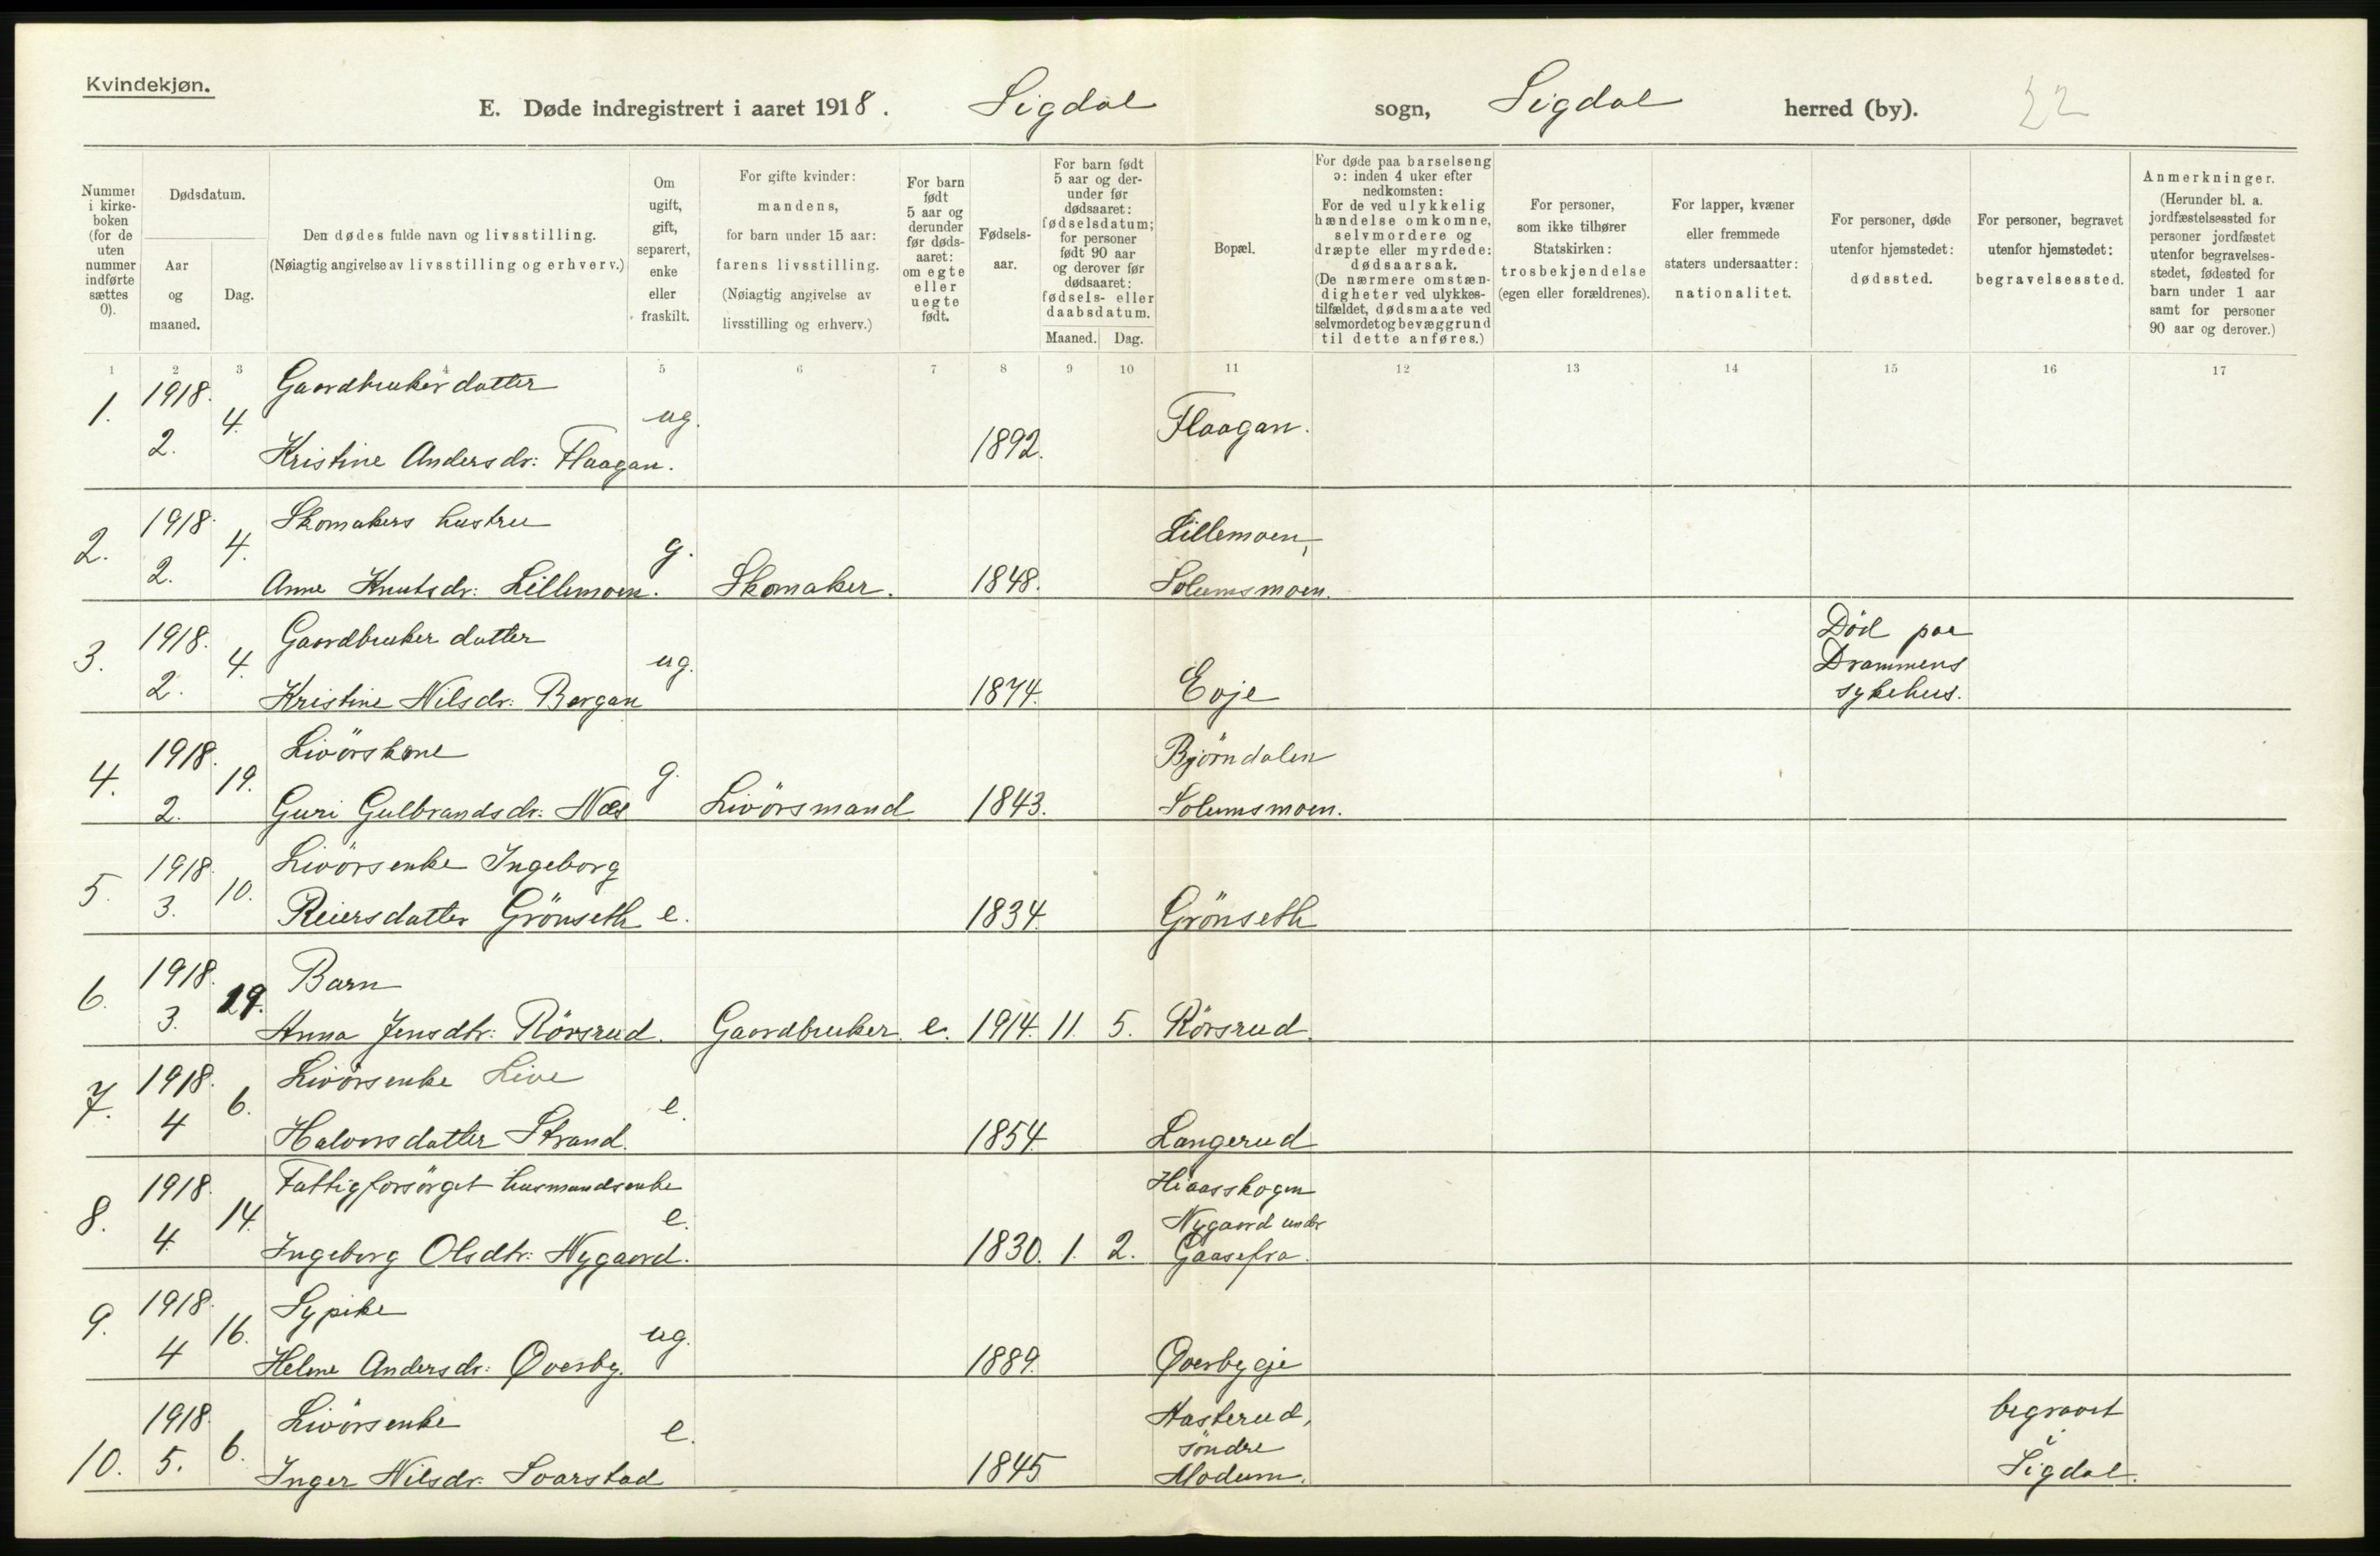 Kvindekjøn.
E. Døde indregistrert i aaret 1918. Sigdal sogn, Sigdal herred (by). 22
Nummer i kirkeboken (for de uten nummer indførte sættes 0).
Dødsdatum.
Aar og maaned.
Dag.
Den dødes fulde navn og livsstilling.
(Nøiagtig angivelse av livsstilling og erhverv.)
Om ugift, gift, separert, enke eller fraskilt.
For gifte kvinder: mandens, for barn under 15 aar: farens livsstilling.
(Nøiagtig angivelse av livsstilling og erhverv.)
For barn født 5 aar og derunder før dødsaaret: om egte eller uegte født.
Fødselsaar.
For barn født 5 aar og derunder før dødsaaret: fødselsdatum; for personer født 90 aar og derover før dødsaaret: fødsels- eller daabsdatum.
Maaned. Dag.
Bopæl.
For døde paa barselseng ɔ: inden 4 uker efter nedkomsten:
For de ved ulykkelig hændelse omkomne, selvmordere og dræpte eller myrdede: dødsaarsak.
(De nærmere omstændigheter ved ulykkestilfældet, dødsmaate ved selvmordet og bevæggrund til dette anføres.)
For personer, som ikke tilhører Statskirken: trosbekjendelse (egen eller forældrenes).
For lapper, kvæner eller fremmede staters undersaatter: nationalitet.
For personer, døde utenfor hjemstedet: dødssted.
For personer, begravet utenfor hjemstedet: begravelsessted.
Anmerkninger.
(Herunder bl. a. jordfæstelsessted for personer jordfæstet utenfor begravelsesstedet, fødested for barn under 1 aar samt for personer 90 aar og derover.)
1 2 3 4 5 6 7 8 9 10 11 12 13 14 15 16 17
1. 1918. 2. 4. Gaardbruker datter
Kristine Andersdr: Flaagan. ug. 1892. Flaagan.
2. 1918. 2. 4. Skomakers hustru
Anne Knutsdr: Lillemoen. g. Skomaker. 1848. Lillemoen,
Solumsmoen.
3. 1918. 2. 4. Gaardbruker datter
Kristine Nilsdr: Bergan ug. 1874. Evje
Död paa
Drammens
sykehus.
4. 1918. 2. 19. Livörskone
Guri Gulbrandsdr: Næs g. Livörsmand 1843. Björndalen
Solumsmoen.
5. 1918. 3. 10. Livörsenke Ingeborg
Reiersdatter Grönseth e. 1834. Grönseth
6. 1918. 3. 19. Barn
Anna Jensdtr: Rörsrud. Gaardbruker. e. 1914. 11. 5. Rörsrud.
7. 1918. 4 6. Livörsenke Live
Halvorsdatter Strand. e. 1854. Langerud
8. 1918. 4. 14. Fattigforsörget husmandsenke
Ingeborg Olsdtr: Nygaard. e. 1830. 1. 2. Hiaasskogen
Nygaard under
9. 1918. 4 16. Sypike
Helene Andersdr: Øverby. ug. 1889. Øverbygje
10. 1918. 5. 6. Livörsenke
Inger Nilsdr: Svarstad e. 1845 Aasterud,
söndre
Modum.
begravet
i
Sigdal.